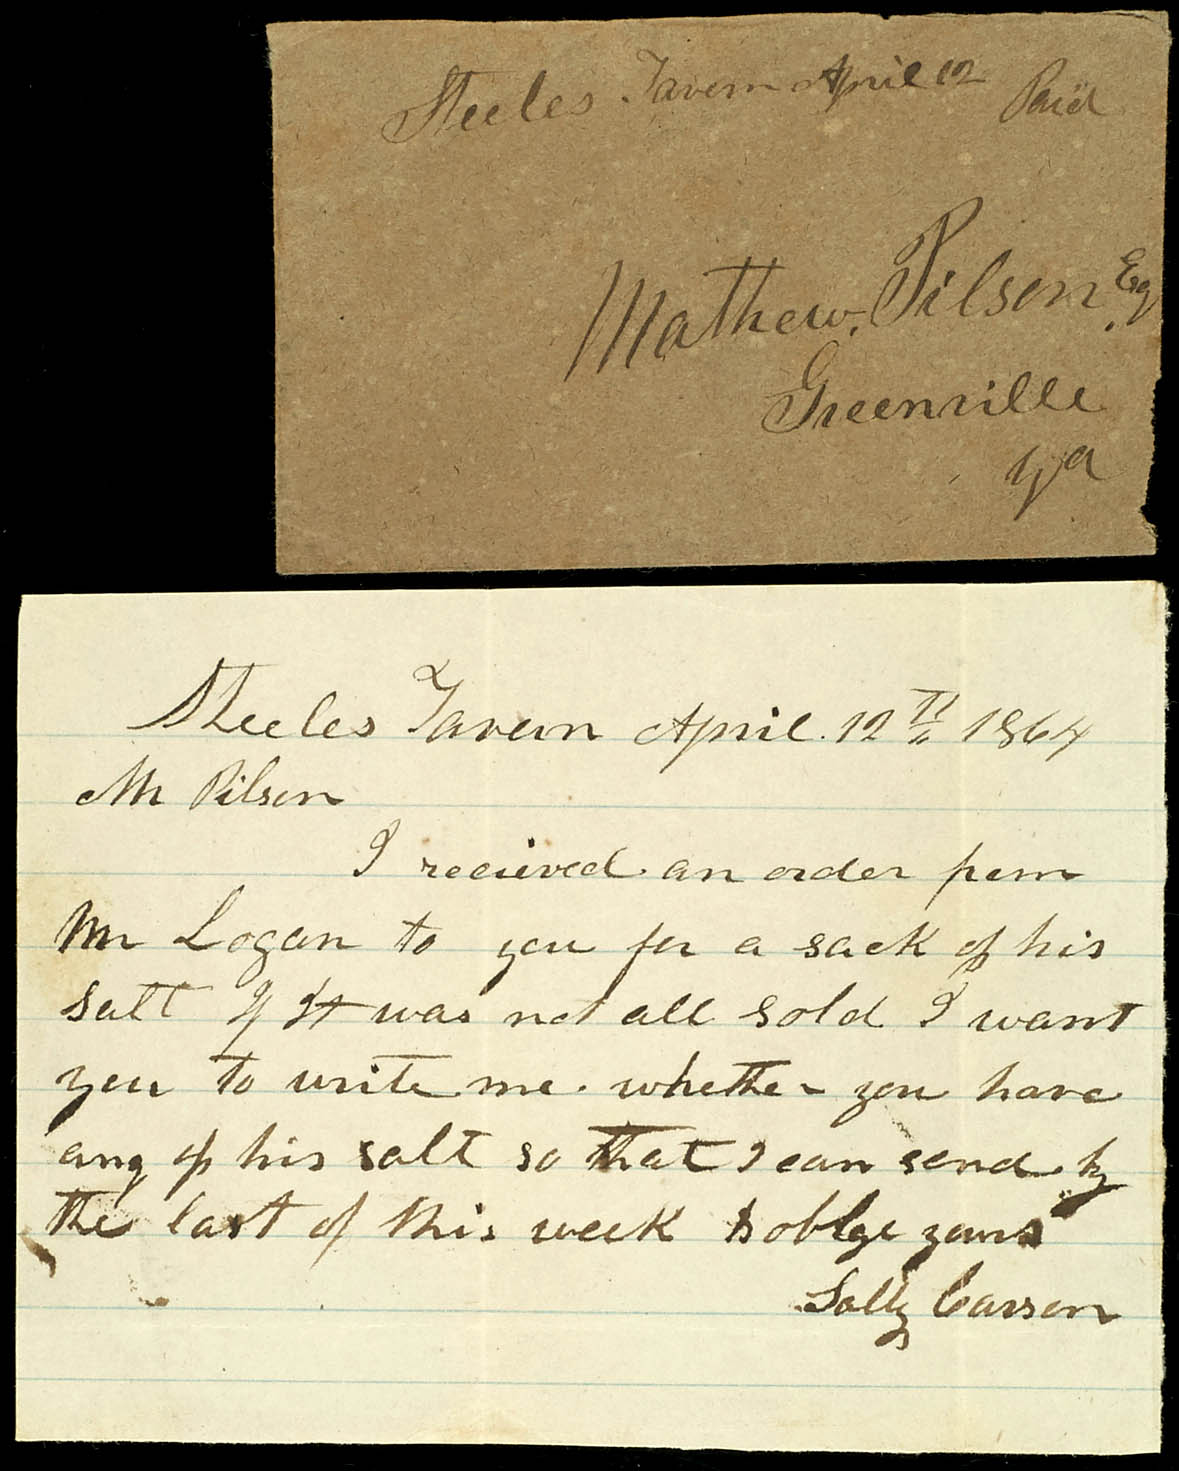 Steeles Tavern April 12 Paid
Mathew. Pilson Esq.
Greenville
Va
Steeles Tavern April. 12TH 1864
Mr Pilson
I recieved an order from
Mr Logan to you for a sack of his
salt If It was not all sold I want
you to write me. whether you have
any of his salt so that I can send by
the last of this week & oblge yours
Sally Carson